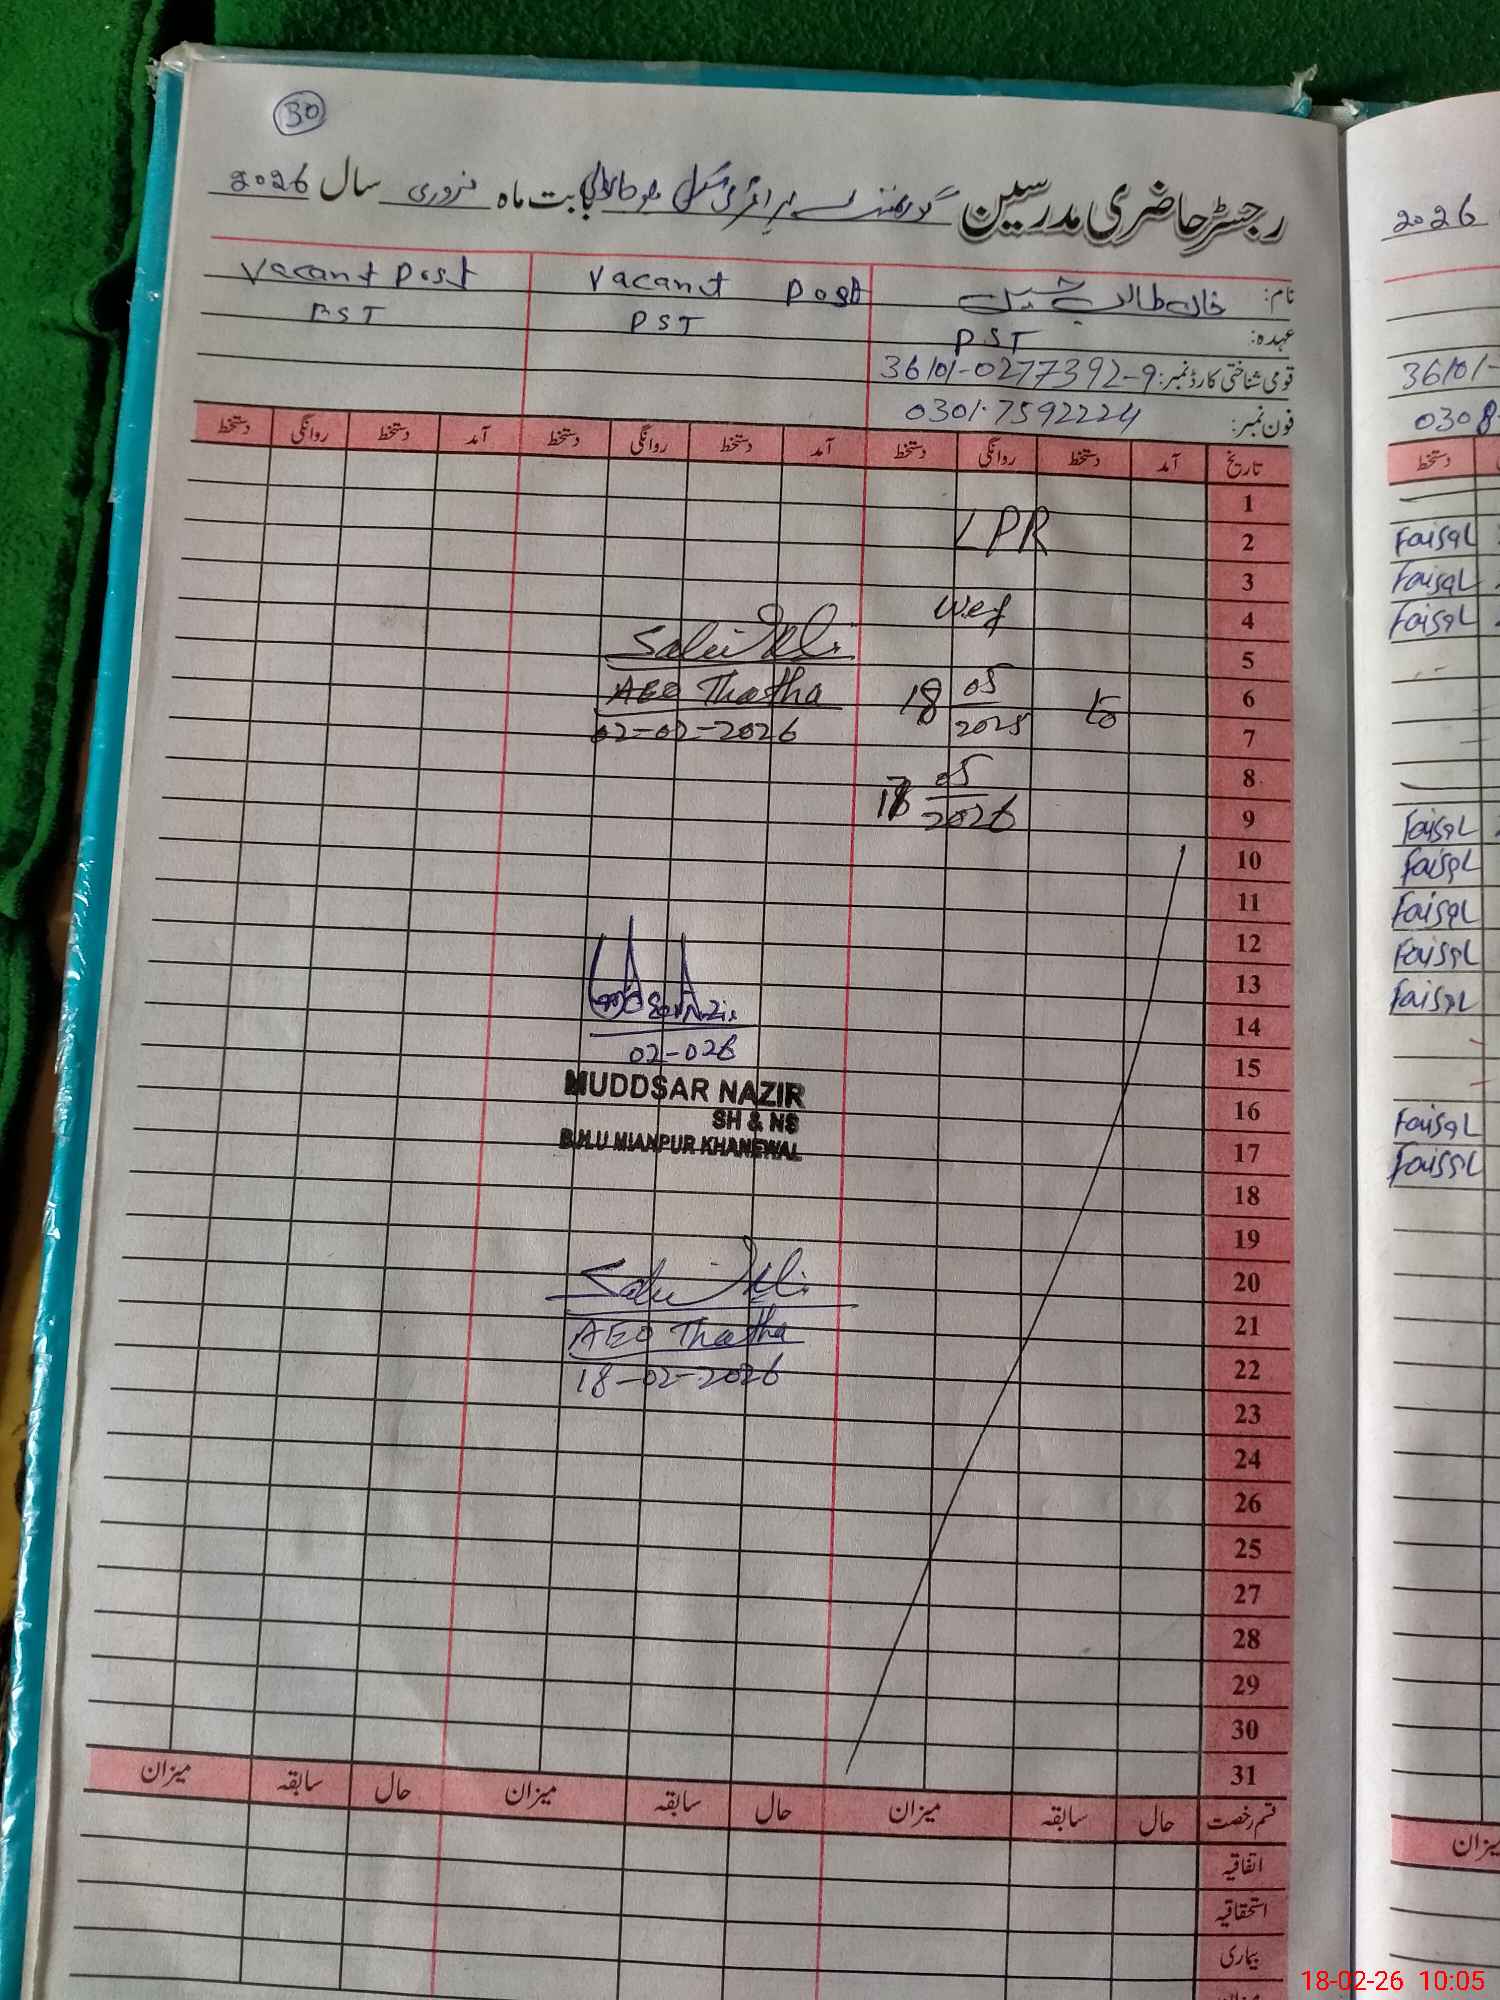 30
رجسٹر حاضری مدرسین گورنمنٹ پرائمری سکول بابت ماہ فروری سال 2026
نام: خان طالب حسین Vacant Post Vacant Post
عہدہ: PST PST PST
قومی شناختی کارڈ نمبر: 36101-0277392-9
فون نمبر: 0301-7592224
تاریخ آمد دستخط روانگی دستخط آمد دستخط روانگی دستخط آمد دستخط روانگی دستخط
1
LPR
2
3
wef
4
5
18 05/2025 to
6
7
18 05/2026
8
9
10
11
12
13
14
15
16
17
18
19
20
21
22
23
24
26
25
27
28
29
30
31
AEO Thatha
02-02-2026
Muddsar Nazir
02-026
MUDDSAR NAZIR
SH & NS
B.H.U MIANPUR KHANEWAL
AEO Thatha
18-02-2026
قسم رخصت حال سابقہ میزان حال سابقہ میزان حال سابقہ میزان
اتفاقیہ
استحقاقیہ
بیماری
2026
36101-
0308-
دستخط
Faisal
Faisal
Faisal
Faisal
Faisal
Faisal
Faisal
Faisal
Faisal
Faisal
میزان
18-02-26 10:05